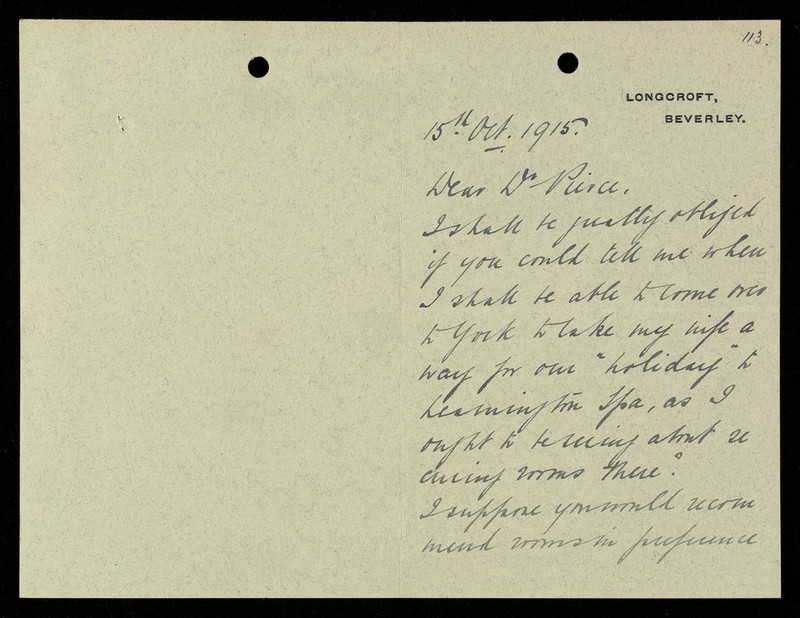 113.
LONGCROFT,
BEVERLEY.
15th Oct. 1915.
Dear Dr Pierce,
I shall be greatly obliged
if you could tell me when
I shall be able to come over
to York to take my wife a
way for our "holiday" to
Leamington Spa, as I
ought to be seeing about se
curing rooms there?
I suppose you would recom
mend rooms in preference